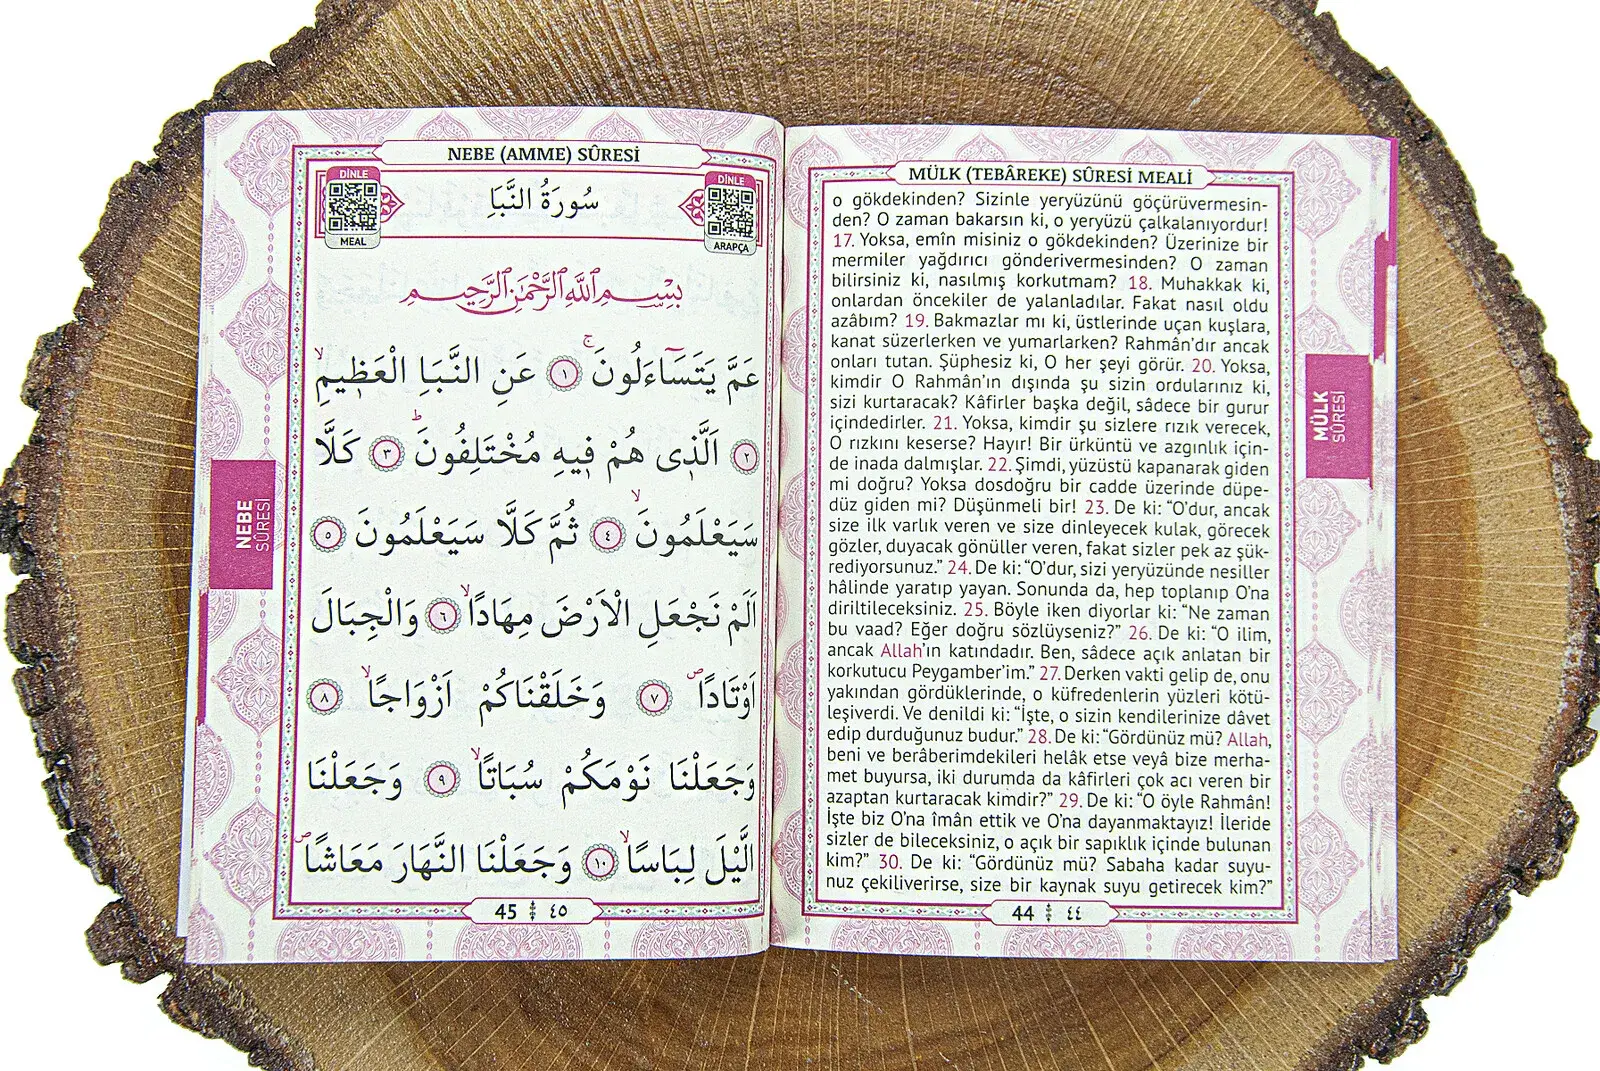 MÜLK (TEBÂREKE) SÛRESİ MEALİ
o gökdekinden? Sizinle yeryüzünü göçürüvermesin-
den? O zaman bakarsın ki, o yeryüzü çalkalanıyordur!
17. Yoksa, emîn misiniz o gökdekinden? Üzerinize bir
mermiler yağdırıcı gönderivermesinden? O zaman
bilirsiniz ki, nasılmış korkutmam? 18. Muhakkak ki,
onlardan öncekiler de yalanladılar. Fakat nasıl oldu
azâbım? 19. Bakmazlar mı ki, üstlerinde uçan kuşlara,
kanat süzerlerken ve yumarlarken? Rahmân'dır ancak
onları tutan. Şüphesiz ki, O her şeyi görür. 20. Yoksa,
kimdir O Rahmân'ın dışında şu sizin ordularınız ki,
sizi kurtaracak? Kâfirler başka değil, sâdece bir gurur
içindedirler. 21. Yoksa, kimdir şu sizlere rızık verecek,
O rızkını keserse? Hayır! Bir ürküntü ve azgınlık için-
de inada dalmışlar. 22. Şimdi, yüzüstü kapanarak giden
mi doğru? Yoksa dosdoğru bir cadde üzerinde düpe-
düz giden mi? Düşünmeli bir! 23. De ki: “O'dur, ancak
size ilk varlık veren ve size dinleyecek kulak, görecek
gözler, duyacak gönüller veren, fakat sizler pek az şük-
rediyorsunuz.” 24. De ki: “O'dur, sizi yeryüzünde nesiller
hâlinde yaratıp yayan. Sonunda da, hep toplanıp O'na
diriltileceksiniz. 25. Böyle iken diyorlar ki: “Ne zaman
bu vaad? Eğer doğru sözlüyseniz?” 26. De ki: “O ilim,
ancak Allah'ın katındadır. Ben, sâdece açık anlatan bir
korkutucu Peygamber'im.” 27. Derken vakti gelip de, onu
yakından gördüklerinde, o küfredenlerin yüzleri kötü-
leşiverdi. Ve denildi ki: “İşte, o sizin kendilerinize dâvet
edip durduğunuz budur.” 28. De ki: “Gördünüz mü? Allah,
beni ve berâberimdekileri helâk etse veyâ bize merha-
met buyursa, iki durumda da kâfirleri çok acı veren bir
azaptan kurtaracak kimdir?” 29. De ki: “O öyle Rahmân!
İşte biz O'na îmân ettik ve O'na dayanmaktayız! İleride
sizler de bileceksiniz, o açık bir sapıklık içinde bulunan
kim?” 30. De ki: “Gördünüz mü? Sabaha kadar suyu-
nuz çekiliverirse, size bir kaynak suyu getirecek kim?”
44 ٤٤
MÜLK
SÛRESİ
NEBE (AMME) SÛRESİ
DİNLE
MEAL
سُورَةُ النَّبَاِ
DİNLE
ARAPÇA
بِسْمِ اللّٰهِ الرَّحْمٰنِ الرَّحِيمِ
عَمَّ يَتَسَٓاءَلُونَۚ ﴿١﴾ عَنِ النَّبَاِ الْعَظ۪يمِۙ
﴿٢﴾ اَلَّذ۪ي هُمْ ف۪يهِ مُخْتَلِفُونَۜ ﴿٣﴾ كَلَّا
سَيَعْلَمُونَۙ ﴿٤﴾ ثُمَّ كَلَّا سَيَعْلَمُونَ ﴿٥﴾
اَلَمْ نَجْعَلِ الْاَرْضَ مِهَادًاۙ ﴿٦﴾ وَالْجِبَالَ
اَوْتَادًاۖ ﴿٧﴾ وَخَلَقْنَاكُمْ اَزْوَاجًاۙ ﴿٨﴾
وَجَعَلْنَا نَوْمَكُمْ سُبَاتًاۙ ﴿٩﴾ وَجَعَلْنَا
الَّيْلَ لِبَاسًاۙ ﴿١٠﴾ وَجَعَلْنَا النَّهَارَ مَعَاشًاۖ
45 ٤٥
NEBE
SÛRESİ